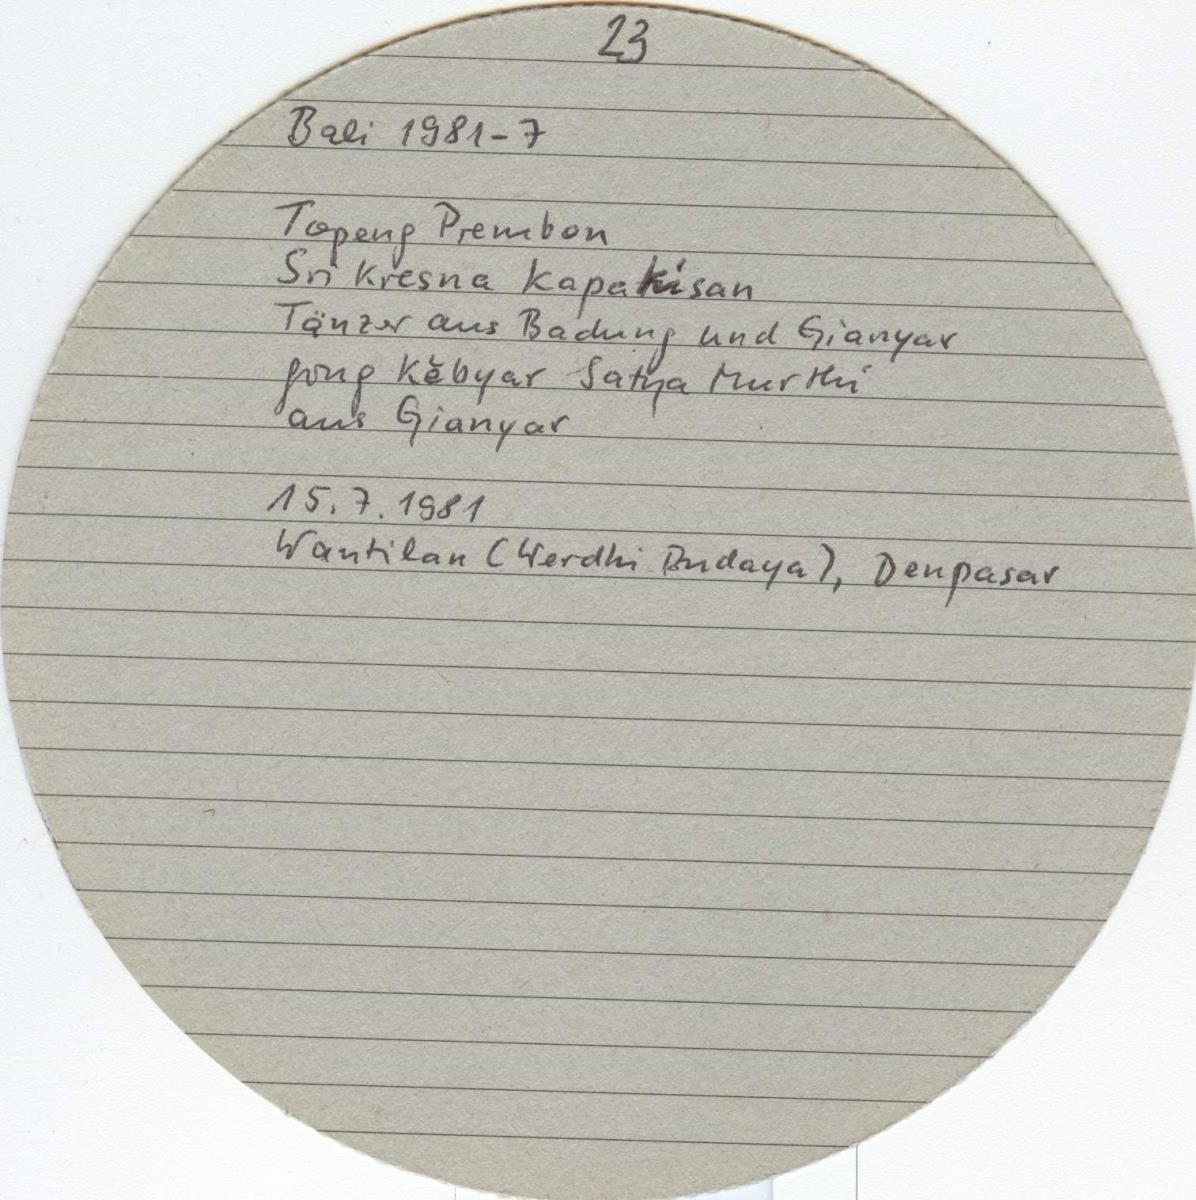 23
Bali 1981-7
Topeng Prembon
Sri Kresna Kapakisan
Tänzer aus Badung und Gianyar
gong Kĕbyar Satya Murthi
aus Gianyar
15.7.1981
Wantilan (Werdhi Budaya), Denpasar